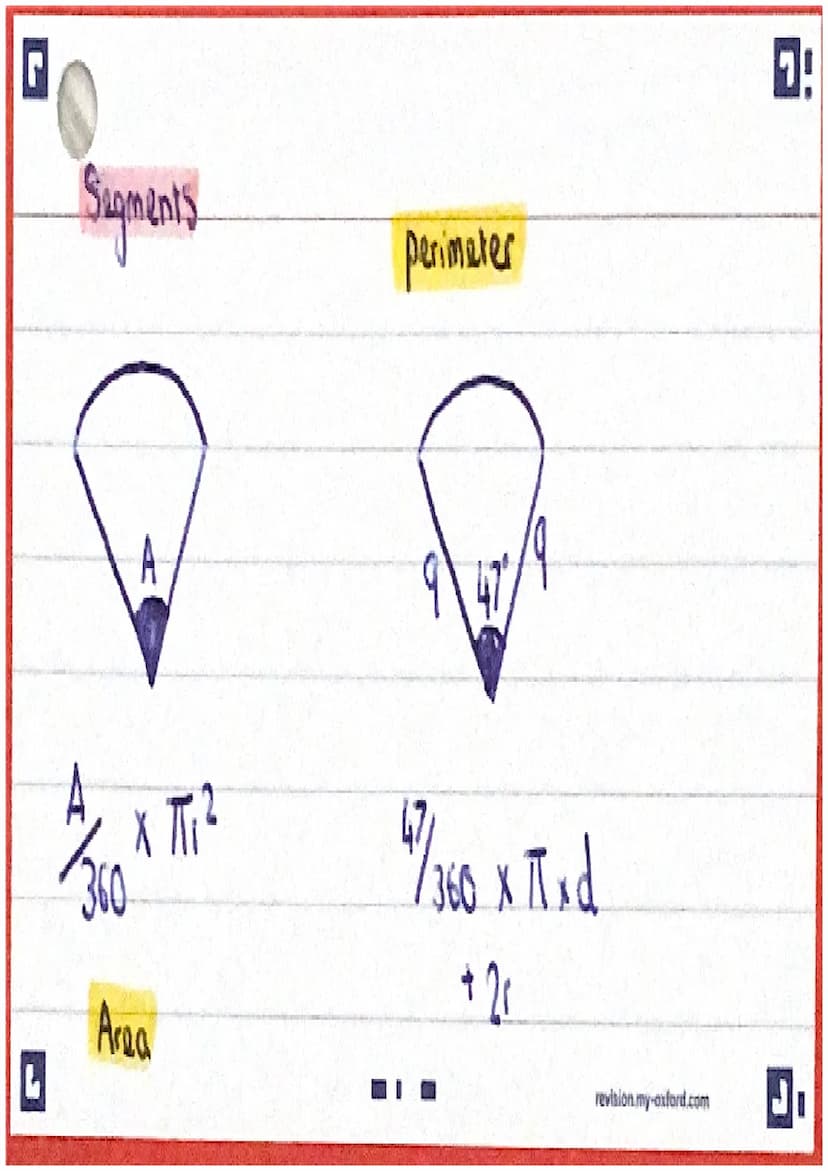 Segments
perimeter
A
9 47° 9
A/360 x πr²
47/360 x π x d
+ 2r
Area
revision.my-oxford.com